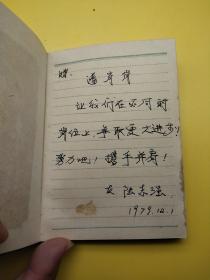 赠:潘昇昇
让我们在不同的
岗位上,争取更大进步!
努力吧!携手并赛!
友 陆东强
1979.12.1